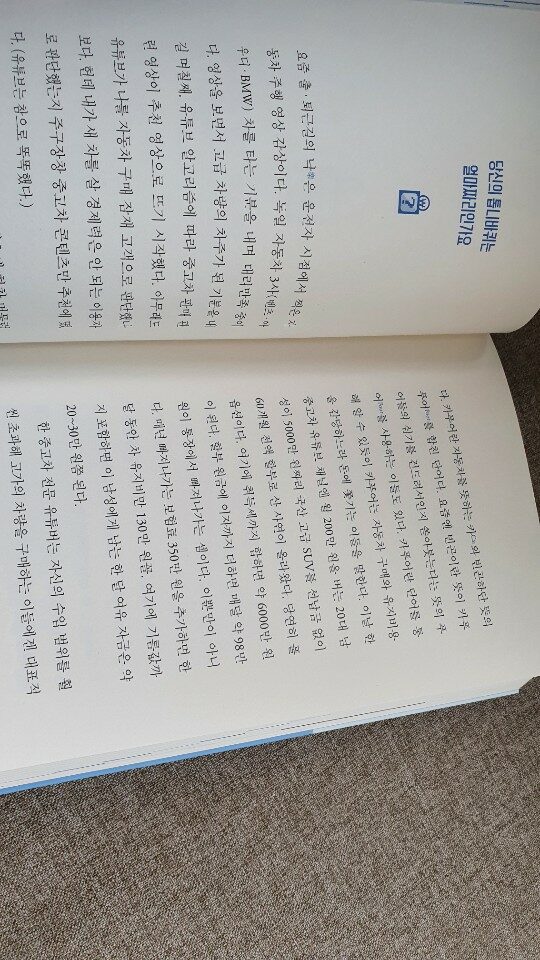 당신의 톱니바퀴는
얼마짜리인가요
요즘 출·퇴근길의 낙樂은 운전자 시점에서 찍은 자
동차 주행 영상 감상이다. 독일 자동차 3사(벤츠·아
우디·BMW) 차를 타는 기분을 내며 대리만족 중이
다. 영상을 보면서 고급 차량의 차주가 된 기분을 내
길 며칠째, 유튜브 알고리즘에 따라 중고차 판매 관
련 영상이 추천 영상으로 뜨기 시작했다. 아무래도
유튜브가 나를 자동차 구매 잠재 고객으로 판단했나
보다. 헌데 내가 새 차를 살 경제력은 안 되는 이용자
로 판단했는지 주구장창 중고차 콘텐츠만 추천에 떴
다. (유튜브는 참으로 똑똑했다.)
다. 카푸어란 자동차를 뜻하는 카car와 빈곤하단 뜻의
푸어poor를 합친 단어다. 요즘엔 빈곤이란 뜻이 카푸
어들의 심기를 건드려서인지 쏟아붓는다는 뜻의 푸
어pour를 사용하는 이들도 있다. 카푸어란 단어를 통
해 알 수 있듯이 카푸어는 자동차 구매와 유지비용
을 감당하느라 돈에 쫓기는 이들을 말한다. 이날 한
중고차 유튜브 채널엔 월 200만 원을 버는 20대 남
성이 5000만 원짜리 국산 고급 SUV를 선납금 없이
60개월 전액 할부로 산 사연이 올라왔다. 당연히 풀
옵션이다. 여기에 취득세까지 합하면 약 6000만 원
이 된다. 할부 원금에 이자까지 더하면 매달 약 98만
원이 통장에서 빠져나가는 셈이다. 이뿐만이 아니
다. 매년 빠져나가는 보험료 350만 원을 추가하면 한
달 동안 차 유지비만 130만 원꼴. 여기에 기름값까
지 포함하면 이 남성에게 남는 한 달 여유 자금은 약
20~30만 원쯤 된다.
한 중고차 전문 유튜버는 자신의 수입 범위를 훨
씬 초과해 고가의 차량을 구매하는 이들에겐 대표적